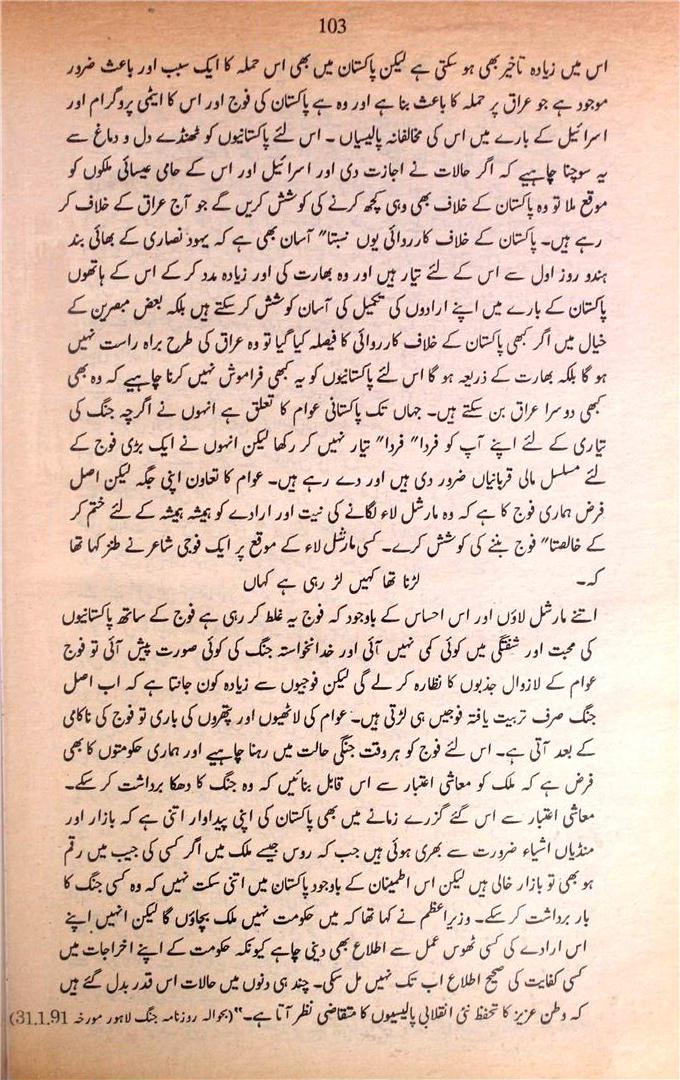 103
اس میں زیادہ تاخیر بھی ہو سکتی ہے لیکن پاکستان میں بھی اس حملہ کا ایک سبب اور باعث ضرور
موجود ہے جو عراق پر حملہ کا باعث بنا ہے اور وہ ہے پاکستان کی فوج اور اس کا ایٹمی پروگرام اور
اسرائیل کے بارے میں اس کی مخالفانہ پالیسیاں ۔ اس لئے پاکستانیوں کو ٹھنڈے دل و دماغ سے
یہ سوچنا چاہیے کہ اگر حالات نے اجازت دی اور اسرائیل اور اس کے حامی عیسائی ملکوں کو
موقع ملا تو وہ پاکستان کے خلاف بھی وہی کچھ کرنے کی کوشش کریں گے جو آج عراق کے خلاف کر
رہے ہیں۔ پاکستان کے خلاف کارروائی یوں نسبتا" آسان بھی ہے کہ یہود نصاری کے بھائی بند
ہندو روز اول سے اس کے لئے تیار ہیں اور وہ بھارت کی اور زیادہ مدد کر کے اس کے ہاتھوں
پاکستان کے بارے میں اپنے ارادوں کی تکمیل کی آسان کوشش کر سکتے ہیں بلکہ بعض مبصرین کے
خیال میں اگر کبھی پاکستان کے خلاف کارروائی کا فیصلہ کیا گیا تو وہ عراق کی طرح براہ راست نہیں
ہو گا بلکہ بھارت کے ذریعہ ہو گا اس لئے پاکستانیوں کو یہ کبھی فراموش نہیں کرنا چاہیے کہ وہ بھی
کبھی دوسرا عراق بن سکتے ہیں۔ جہاں تک پاکستانی عوام کا تعلق ہے انہوں نے اگرچہ جنگ کی
تیاری کے لئے اپنے آپ کو فردا" فردا" تیار نہیں کر رکھا لیکن انہوں نے ایک بڑی فوج کے
لئے مسلسل مالی قربانیاں ضرور دی ہیں اور دے رہے ہیں۔ عوام کا تعاون اپنی جگہ لیکن اصل
فرض ہماری فوج کا ہے کہ وہ مارشل لاء لگانے کی نیت اور ارادے کو ہمیشہ ہمیشہ کے لئے ختم کر
کے خالصتا" فوج بننے کی کوشش کرے۔ کسی مارشل لاء کے موقع پر ایک فوجی شاعر نے طنز کہا تھا
کہ۔ لڑنا تھا کہیں لڑ رہی ہے کہاں
اتنے مارشل لاؤں اور اس احساس کے باوجود کہ فوج یہ غلط کر رہی ہے فوج کے ساتھ پاکستانیوں
کی محبت اور شفتگی میں کوئی کمی نہیں آئی اور خدانخواستہ جنگ کی کوئی صورت پیش آئی تو فوج
عوام کے لازوال جذبوں کا نظارہ کر لے گی لیکن فوجیوں سے زیادہ کون جانتا ہے کہ اب اصل
جنگ صرف تربیت یافتہ فوجیں ہی لڑتی ہیں۔ عوام کی لاٹھیوں اور پتھروں کی باری تو فوج کی ناکامی
کے بعد آتی ہے۔ اس لئے فوج کو ہر وقت جنگی حالت میں رہنا چاہیے اور ہماری حکومتوں کا بھی
فرض ہے کہ ملک کو معاشی اعتبار سے اس قابل بنائیں کہ وہ جنگ کا دھکا برداشت کر سکے۔
معاشی اعتبار سے اس گئے گزرے زمانے میں بھی پاکستان کی اپنی پیداوار اتنی ہے کہ بازار اور
منڈیاں اشیاء ضرورت سے بھری ہوئی ہیں جب کہ روس جیسے ملک میں اگر کسی کی جیب میں رقم
ہو بھی تو بازار خالی ہیں لیکن اس اطمینان کے باوجود پاکستان میں اتنی سکت نہیں کہ وہ کسی جنگ کا
بار برداشت کر سکے۔ وزیراعظم نے کہا تھا کہ میں حکومت نہیں ملک بچاؤں گا لیکن انہیں اپنے
اس ارادے کی کسی ٹھوس عمل سے اطلاع بھی دینی چاہے کیونکہ حکومت کے اپنے اخراجات میں
کسی کفایت کی صحیح اطلاع اب تک نہیں مل سکی۔ چند ہی دنوں میں حالات اس قدر بدل گئے ہیں
کہ وطن عزیز کا تحفظ نئی انقلابی پالیسیوں کا متقاضی نظر آتا ہے۔" (بحوالہ روزنامہ جنگ لاہور مورخہ 31.1.91)